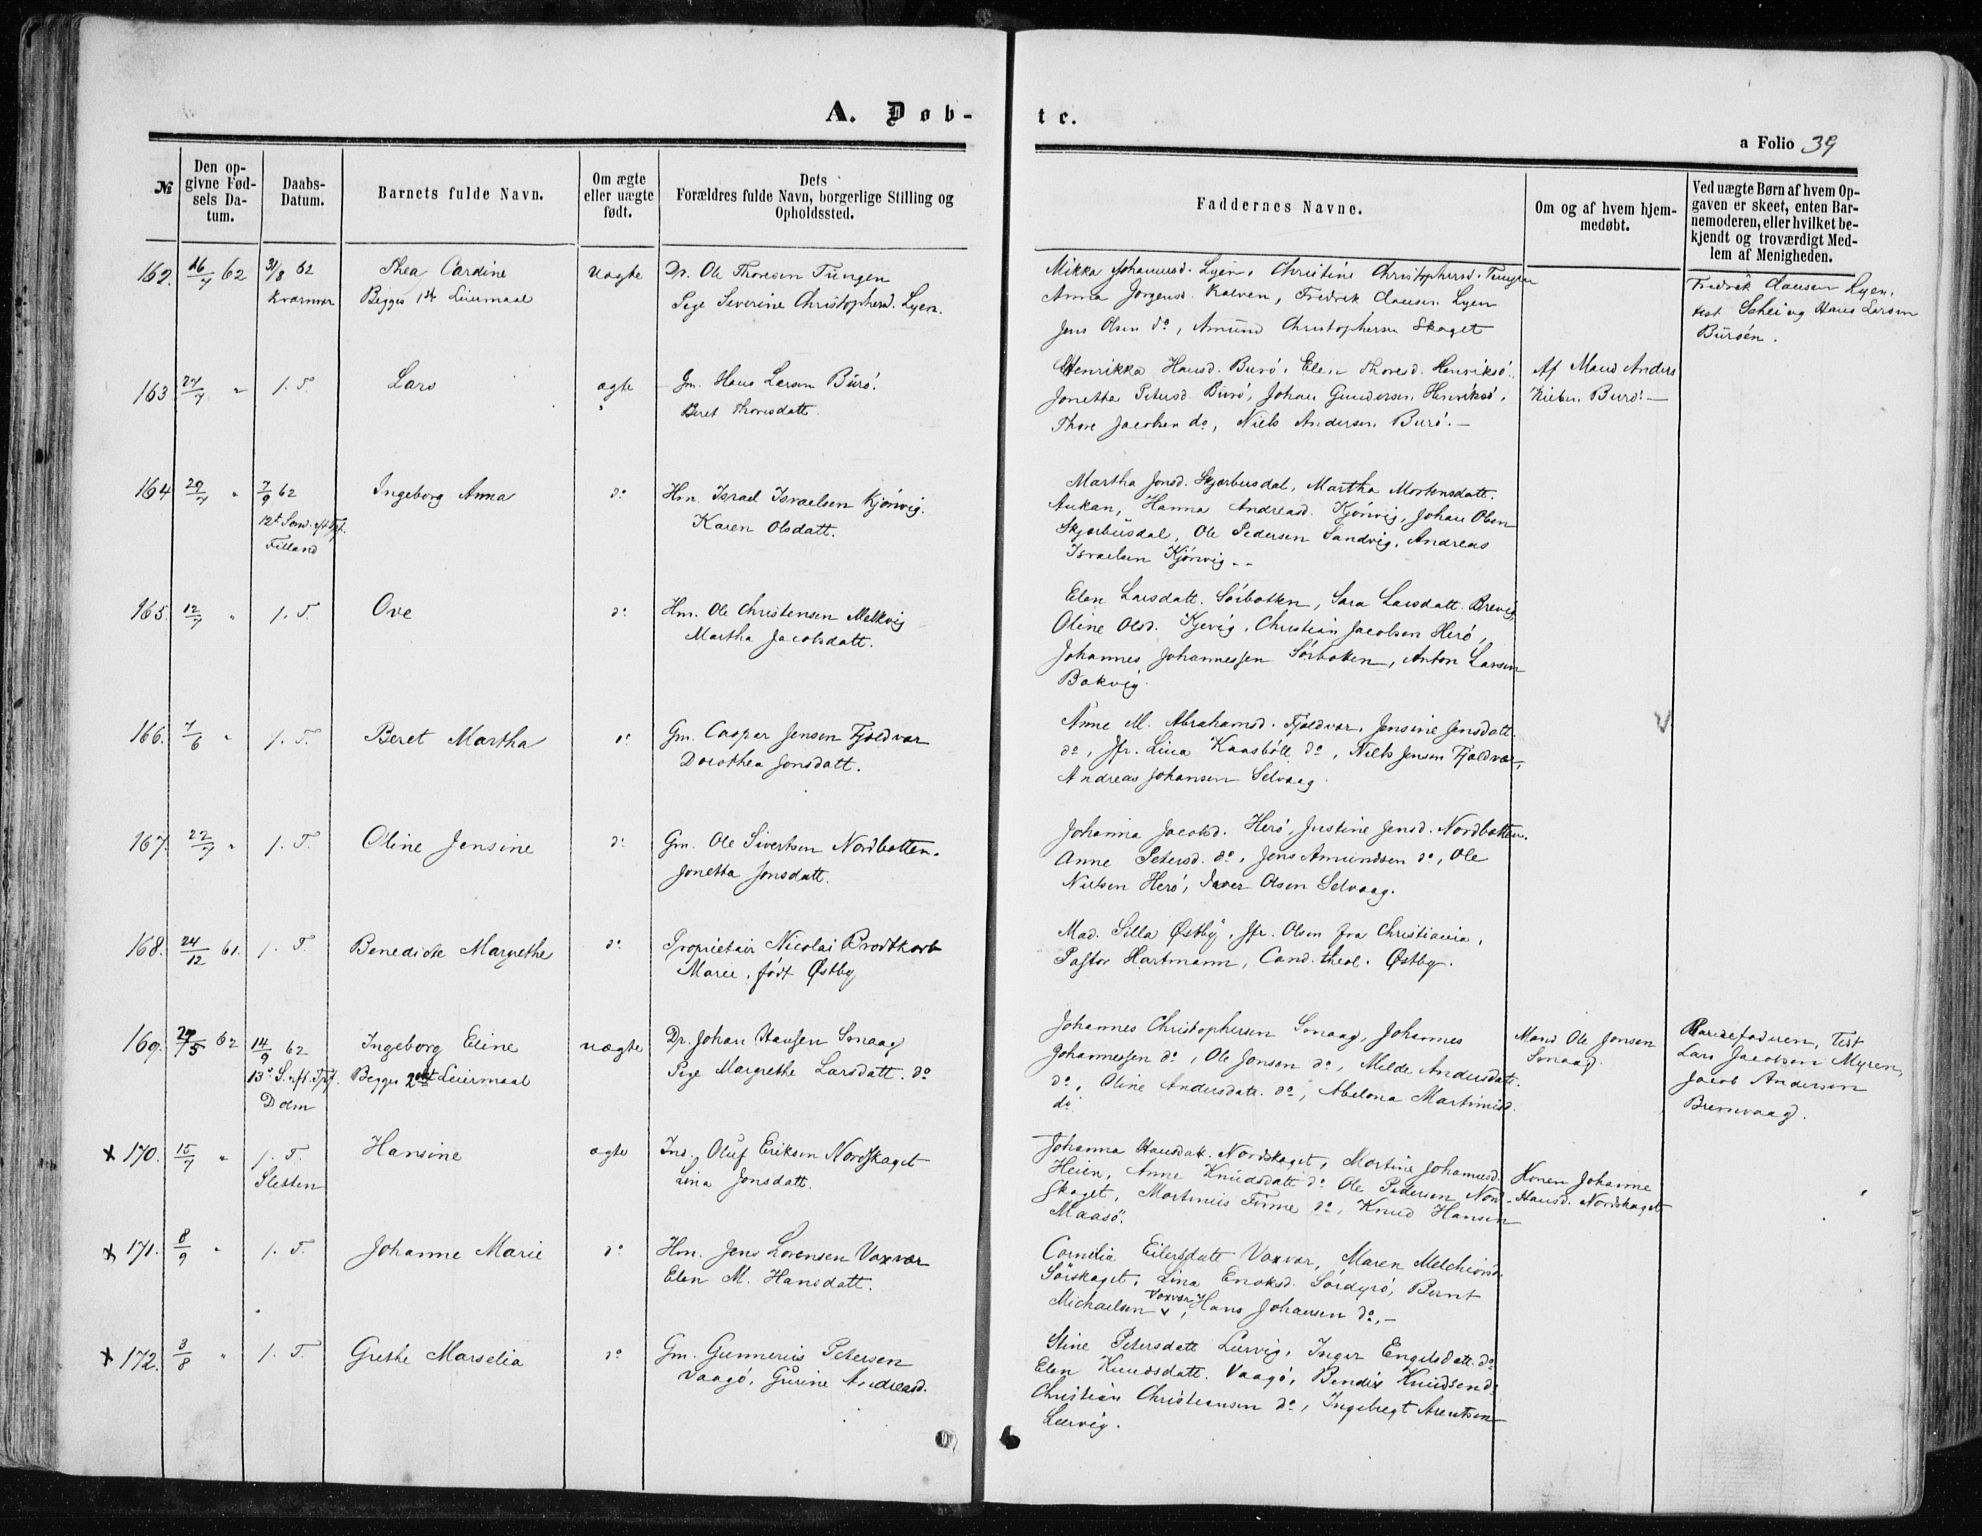 A. Døb-
te.
a Folio 39
№
Den op-
givne Fød-
sels Da-
tum.
Daabs-
Datum.
Barnets fulde Navn.
Om ægte
eller uægte
født.
Dets
Forældres fulde Navn, borgerlige Stilling og
Opholdssted.
Faddernes Navne.
Om og af hvem hjem-
medøbt.
Ved uægte Børn af hvem Op-
gaven er skeet, enten Bar-
nemoderen, eller hvilket be-
kjendt og troværdigt Med-
lem af Menigheden.
162. 16/7 62 31/8 62 Thea Cardine Uægte Dr. Ole Thoresen Tungen
Kvarnvær Begges 1st Leiermaal Pige Severine Christophersd. Lyen.
Mikka Johannesd. Lyen, Christine Christophersd. Tungen
Anna Jørgensd. Kalven, Fredrik Clausen Lyen
Jens Olsen do, Amund Christophersen Skaget
Fredrik Clausen Lyen,
test Schei og Hans Larsen
Burøen.
163 27/7 " 1. T. Lars ægte Gm. Hans Larsen Burø.
Beret Thoresdatt.
Henrikka Hansd. Burø, Elen Thoresd. Henriksø.
Jonetta Petersd. Burø, Johan Gundersen Henriksø,
Thore Jacobsen do, Niels Andersen Burø.-
Af Mand Anders
Burø.-
164 20/7 " 7/9 62 Ingeborg Anna do Hm. Israel Israelsen Kjønvig.
12t Sønd. eft. Tpf. Karen Olsdatt.
Filland
Martha Jonsd. Skjærbusdal, Martha Mortensdatt.
Aukan, Hanna Andreasd. Kjønvig, Johan Olsen
Skjærbusdal, Ole Pedersen Sandvig, Andreas
Israelsen Kjønvig --
165. 12/7 " 1. T. Ove do Hm. Ole Christensen Melkvig
Martha Jacobsdatt.
Elen Larsdatt. Sørbotten, Sara Larsdatt. Brevig,
Oline Olsd. Kjevig, Christian Jacobsen Herø,
Johannes Johannessen Sørbotten, Anton Larsen
Bakvig.
166. 7/6 " 1. T. Beret Martha do Gm. Casper Jensen Fjeldvær
Dorothea Jonsdatt.
Anne M. Abrahamsd. Fjeldvær, Jensine Jensdatt.
do, Jfr. Lina Kaasbøll do, Niels Jensen Fjeldvær,
Andreas Johansen Selvaag.
167. 22/7 " 1. T. Oline Jensine do Gm. Ole Sivertsen Nordbotten.
Jonetta Jonsdatt.
Johanna Jacobsd. Herø, Justine Jensd. Nordbotten.
Anne Petersd. do, Jens Amundsen do, Ole
Nielsen Herø, Iver Olsen Selvaag.
168. 24/12 61. 1. T. Benedicte Margrethe do Proprietair Nicolai Brodtkorb
Marie, født Østby
Mad. Silla Østby, Jfr. Olsen fra Christiania,
Pastor Hartmann, Cand. theol. Østby.
169. 27/5 62 14/9 62 Ingeborg Eline uægte Dr. Johan Hansen Smaag
13d S. eft. Tpf. Begges 2det Leiermaal Pige Margrethe Larsdatt. do
Dolm
Johannes Christophersen Smaag, Johannes
Johannessen do, Ole Jonsen do, Milde Andersdatt.
do, Oline Andersdatt. do, Abelona Martinusd.
do.
Mand Ole Jonsen
Smaag.
Barnefaderen, Test
Lars Jacobsen Myren,
Jacob Andersen
Bremvaag.
x 170. 15/7 " 1. T. Hansine ægte Ind. Oluf Eriksen Nordskaget
Sletten Lina Jonsdatt.
Johanna Hansdatt. Nordskaget, Martine Johannesd.
Heien, Anne Knudsdatt. do Ole Pedersen Nord-
skaget, Martinus Finne do, Knud Hansen
Maasø.
Konen Johanne
Hansd. Nordskaget
x 171. 8/9 " 1. T. Johanne Marie do Hm. Jens Lorensen Vaxvær
Elen M. Hansdatt.
Cornelia Eilersdatt Vaxvær, Maren Melchiorsd.
Sørskaget, Lina Enoksd. Sørdyrø, Bernt
Michaelsen Vaxvær, Hans Johansen do,-
x 172. 3/8 " 1. T. Grethe Marselia do Gm. Gunnerius Petersen
Vaagø, Gurine Andreasd.
Stine Petersdatt Lervig, Inger Engelsdatt. do
Elen Knudsdatt. Vaagø, Bendix Knudsen do
Christian Christiansen do, Ingebregt Arentsen
Leervig.